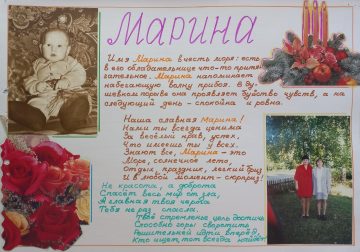 Марина
Имя Марина в честь моря: есть
в его обладательнице что-то притя-
гательное. Марина напоминает
набегающую волну прибоя. В ду-
шевном порыве она проявляет буйство чувств, а на
следующий день - спокойна и ровна.
Наша славная Марина!
Нами ты всегда ценима
За весёлый нрав, успех,
Что имеешь ты у всех.
Знают все, Марина - это
Море, солнечное лето,
Отдых, праздник, легкий бриз
И в любой момент - сюрприз!
Не красота, а доброта
Спасёт весь мир от зла,
А главная твоя черта
Тебя не раз спасла.
Твоё стремленье цель достичь
Способно горы своротить
Решительней иди вперёд,
Кто ищет, тот всегда найдёт.